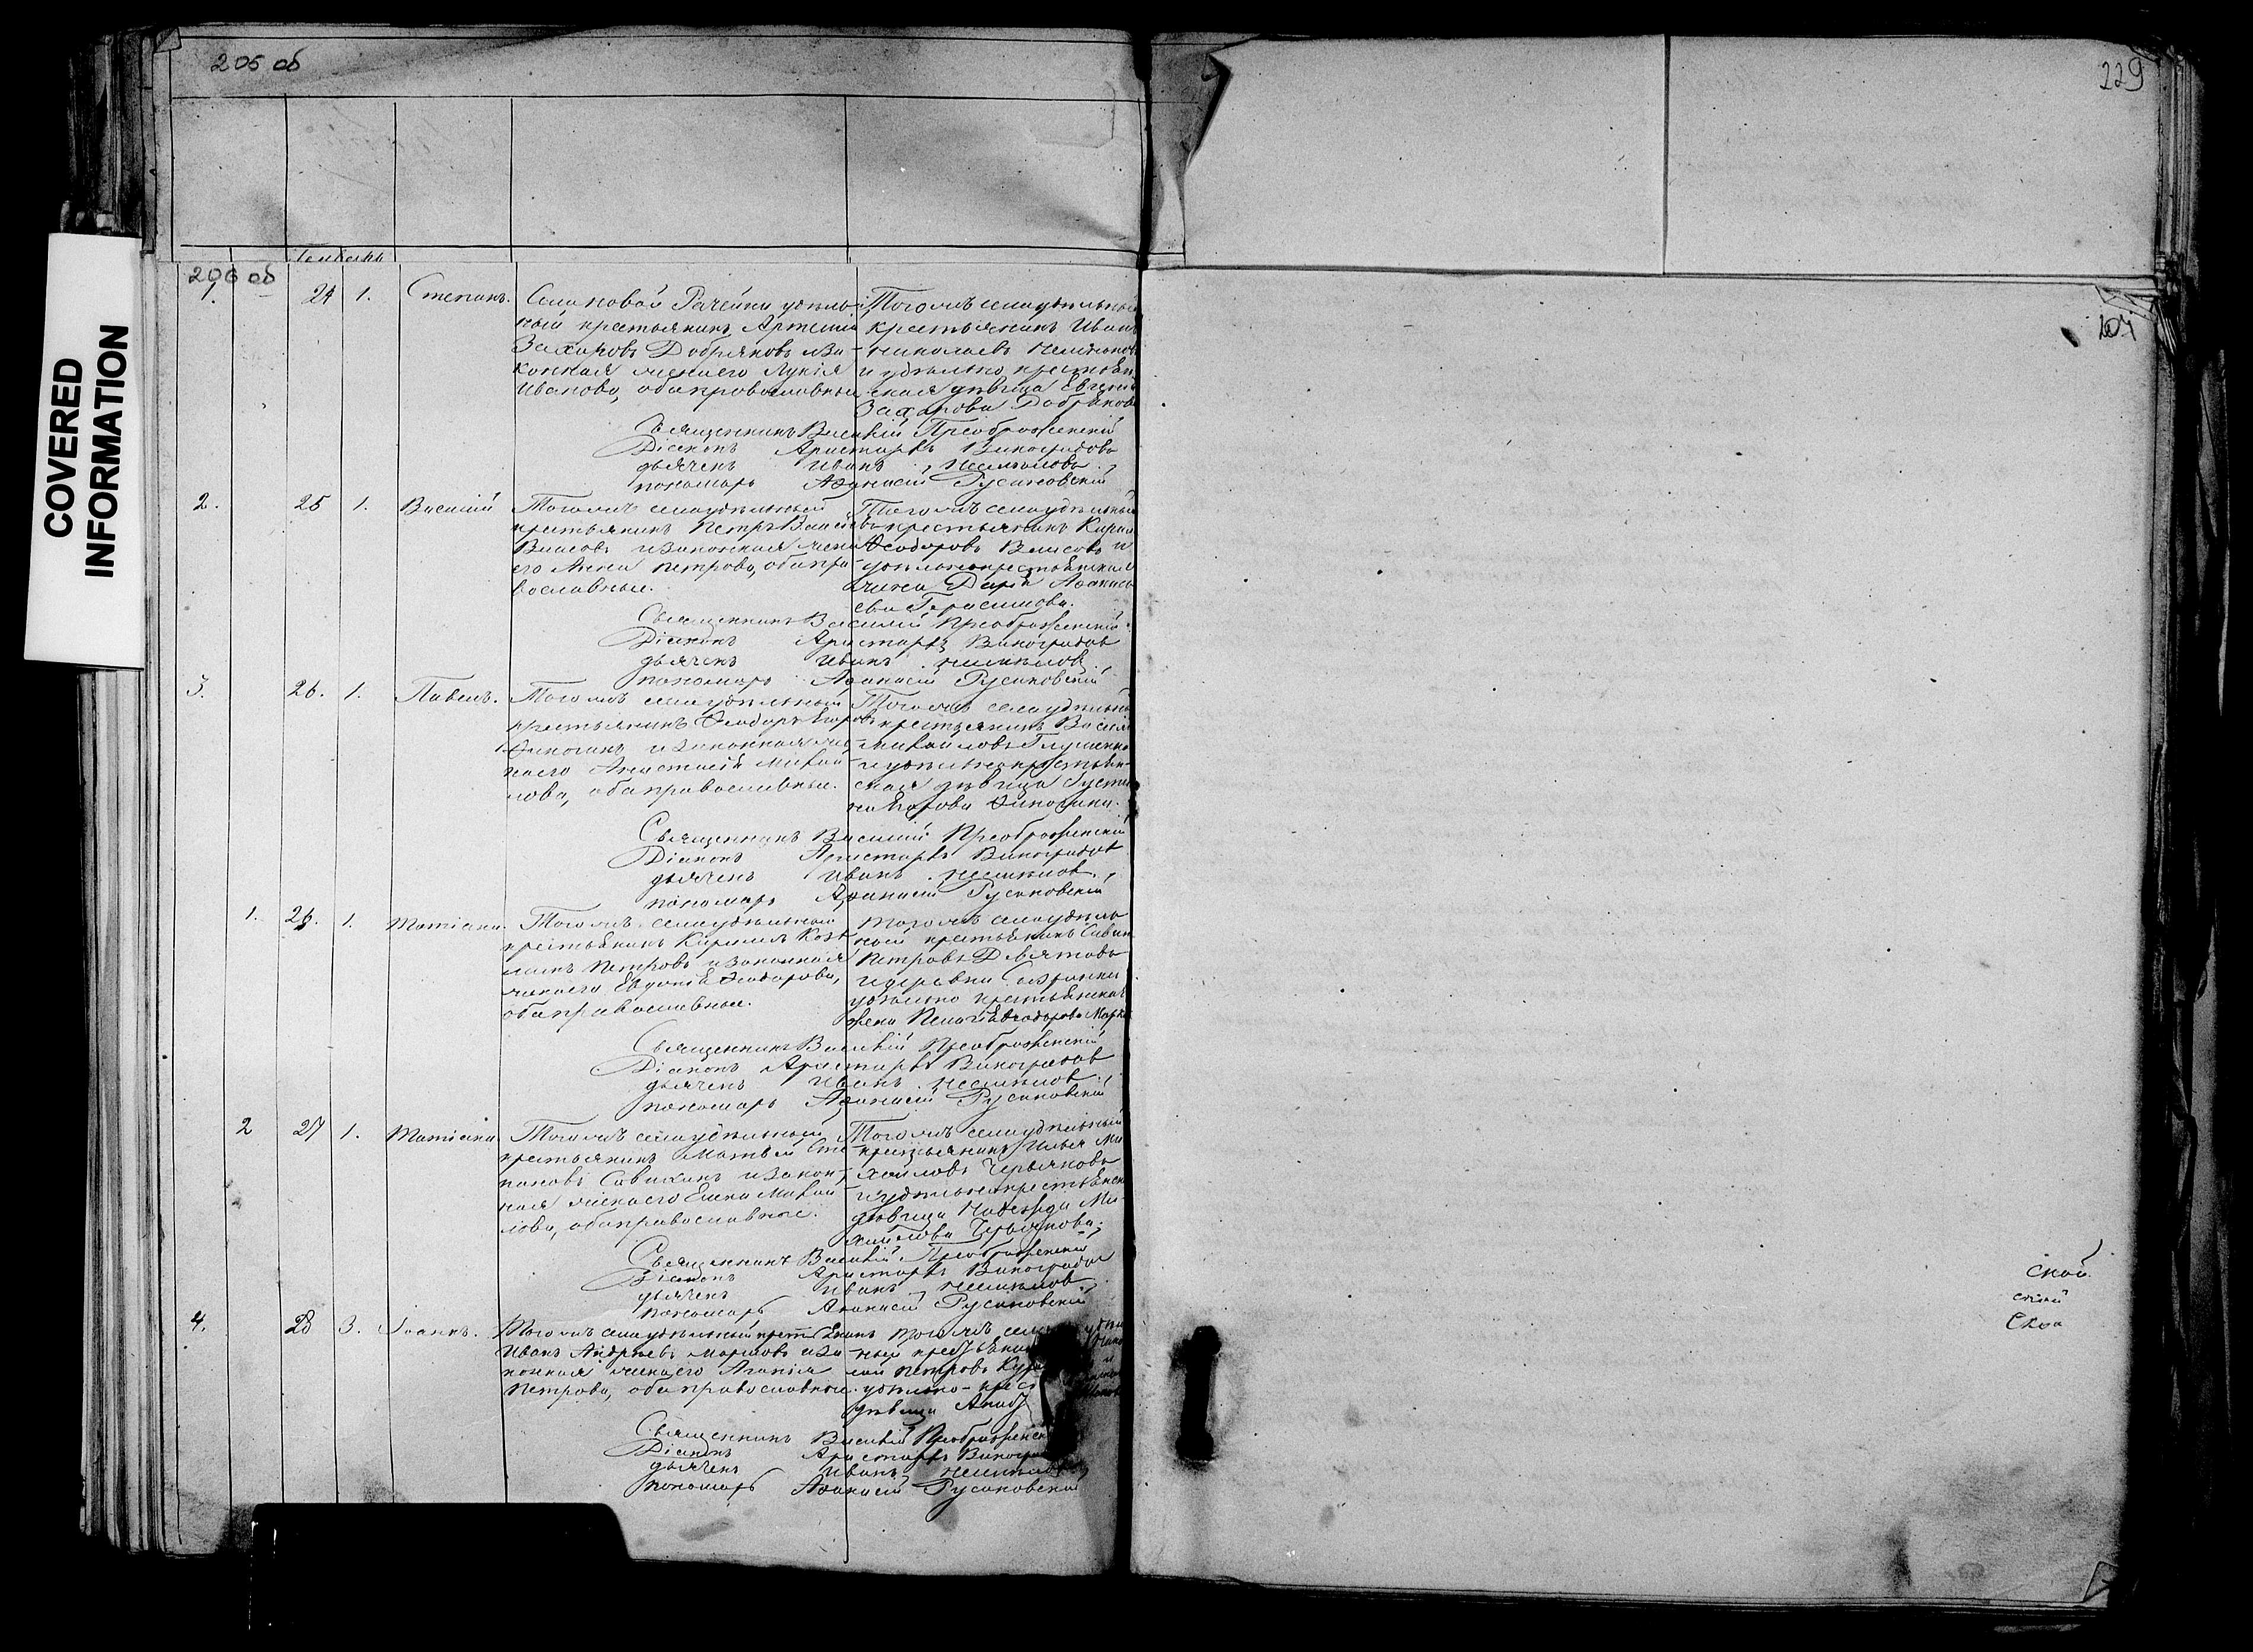 205 об
229
COVERED
INFORMATION
206 об
204
1. 24 1. Степанъ.
Села Новой Рачейки удѣль-
ный крестьянинъ Артемій
Захаровъ Добряковъ и за-
конная жена его Лукія
Иванова, оба православные
Того жъ села удѣльный
крестьянинъ Иванъ
Николаевъ
и удѣльно крестьян-
ская дѣвица Евгенія
Захарова Добрякова
Священникъ Василій Преображенскій
Діаконъ Аристархъ Виноградовъ
дьячекъ Иванъ Несмѣловъ,
пономарь Аѳанасій Русановскій
2. 25 1. Василій
Того жъ села удѣльный
крестьянинъ Петръ Васильевъ
Власовъ и законная жена
его Анна Петрова, оба пра-
вославные.
Того жъ села удѣльный
крестьянинъ Кирилъ
Ѳеодоровъ Власовъ и
удѣльно крестьянская
жена Дарія Аѳанась-
ева Герасимова.
Священникъ Василій Преображенскій
Діаконъ Аристархъ Виноградовъ
дьячекъ Иванъ Несмѣловъ,
пономарь Аѳанасій Русановскій
3. 26. 1. Павелъ.
Того жъ села удѣльный
крестьянинъ Ѳеодоръ Егоровъ
Финогинъ и законная же-
на его Анастасія Михай-
лова, оба православные.
Того жъ села удѣльный
крестьянинъ Василій
Михайловъ
и удѣльно крестьян-
ская дѣвица Густи-
на Егорова Финогина.
Священникъ Василій Преображенскій
Діаконъ Аристархъ Виноградовъ
дьячекъ Иванъ Несмѣловъ,
пономарь Аѳанасій Русановскій
1. 26. 1. Татіана.
Того жъ села удѣльный
крестьянинъ Кирилъ Козь-
минъ Петровъ и законная
жена его Евдокія Ѳеодорова,
оба православные.
Того жъ села удѣль-
ный крестьянинъ Савинъ
Петровъ Девятовъ
и деревни Сызранки
удѣльно крестьянская
жена Пелагія Ѳеодорова
Священникъ Василій Преображенскій
Діаконъ Аристархъ Виноградовъ
дьячекъ Иванъ Несмѣловъ,
пономарь Аѳанасій Русановскій
2 27 1. Татіана.
Того жъ села удѣльный
крестьянинъ Матвей Сте-
пановъ Савихинъ и закон-
ная жена его Елена Михай-
лова, оба православные.
Того жъ села удѣльный
крестьянинъ Илья Ми-
хайловъ Червяковъ
и удѣльно крестьянская
дѣвица Надежда Ми-
хайлова Червякова.
Священникъ Василій Преображенскій
Діаконъ Аристархъ Виноградовъ
дьячекъ Иванъ Несмѣловъ,
пономарь Аѳанасій Русановскій
4. 28 3. Іоаннъ.
Того жъ села удѣльный крестьянинъ
Иванъ Андреевъ Марковъ и за-
конная жена его Агапія
Петрова, оба православные.
Того жъ села удѣль-
ный крестьянинъ
Петровъ
удѣльно-крес
дѣвица
Священникъ Василій Преображенск
Діаконъ Аристархъ Виногра
дьячекъ Иванъ Несмѣловъ
пономарь Аѳанасій Русановскій
ской
скій